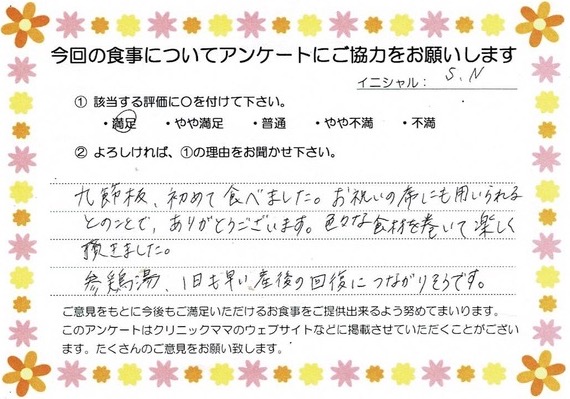 今回の食事についてアンケートにご協力をお願いします
イニシャル： S.N
① 該当する評価に○を付けて下さい。
・満足 ・やや満足 ・普通 ・やや不満 ・不満
② よろしければ、①の理由をお聞かせ下さい。
九節板、初めて食べました。お祝いの席にも用いられる
とのことで、ありがとうございます。色々な食材を巻いて楽しく
頂きました。
参鶏湯、1日も早い産後の回復につながりそうです。
ご意見をもとに今後もご満足いただけるお食事をご提供出来るよう努めてまいります。
このアンケートはクリニックママのウェブサイトなどに掲載させていただくことがござい
ます。たくさんのご意見をお願い致します。